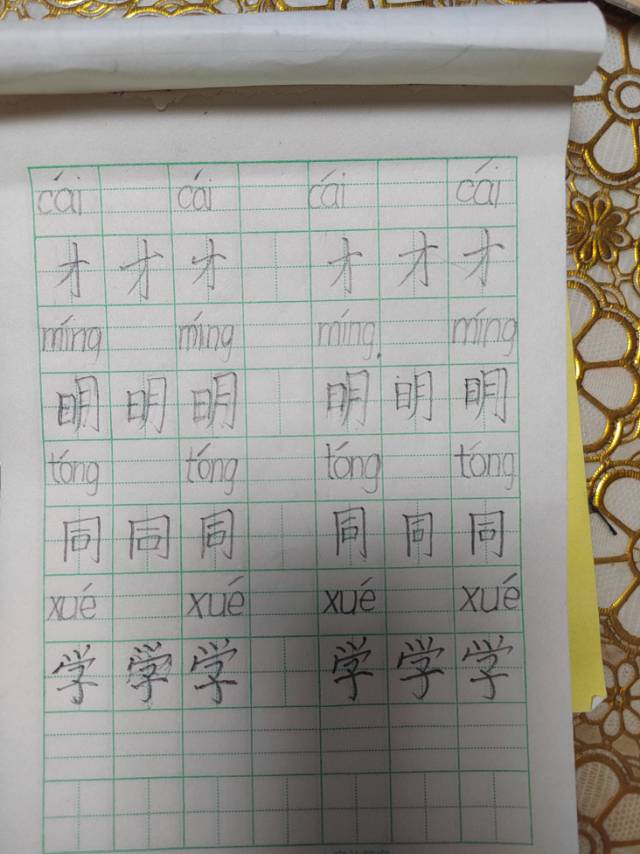 cái cái cái cái
才 才 才 才 才 才
míng míng míng míng
明 明 明 明 明 明
tóng tóng tóng tóng
同 同 同 同 同 同
xué xué xué xué
学 学 学 学 学 学